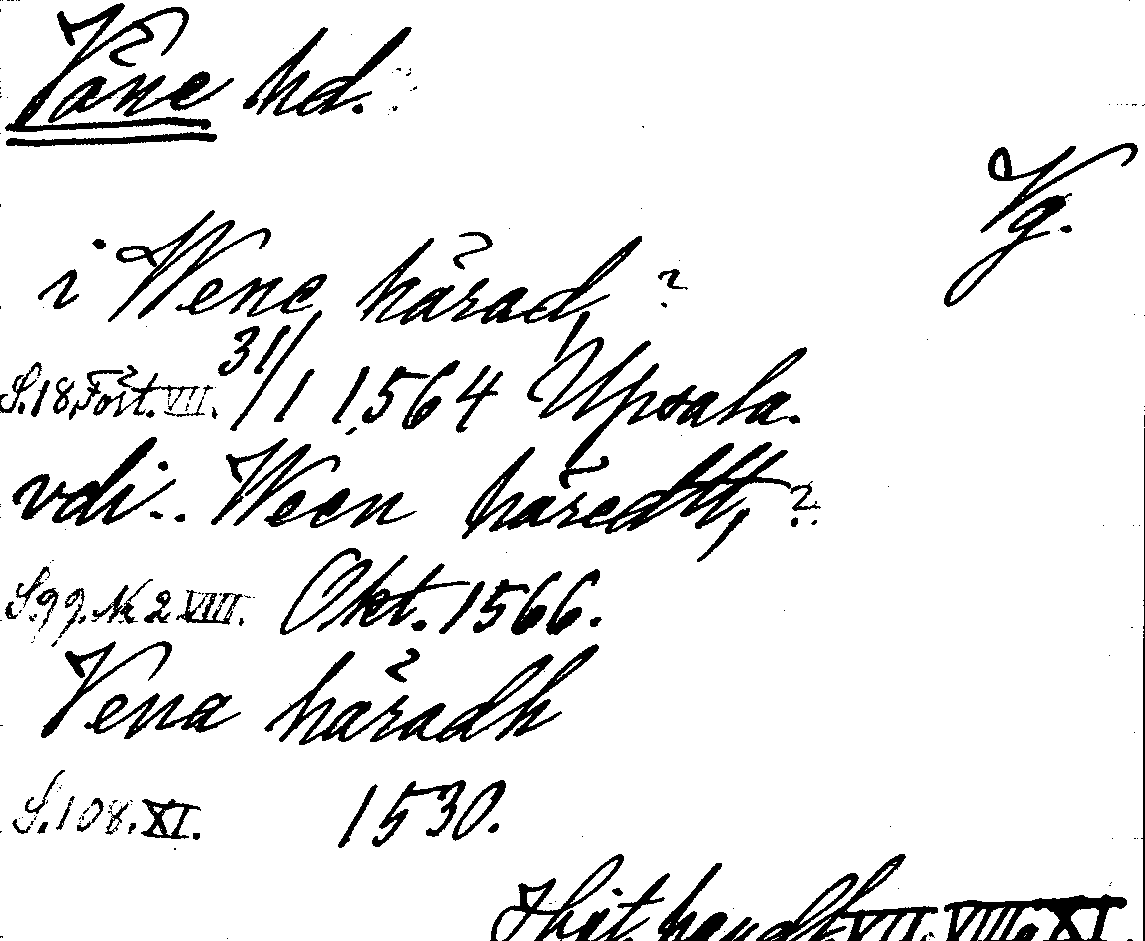 Väne hd.
Vg.
i Wene härad, ?
S.18, Fört. VII. 31/1 1564 Upsala.
vdi.. Ween häredtt, ?
S.99. № 2 VIII. Okt. 1566.
Vena häradh
S.108. XI. 1530.
Hist. handl. VII. VIII o XI.